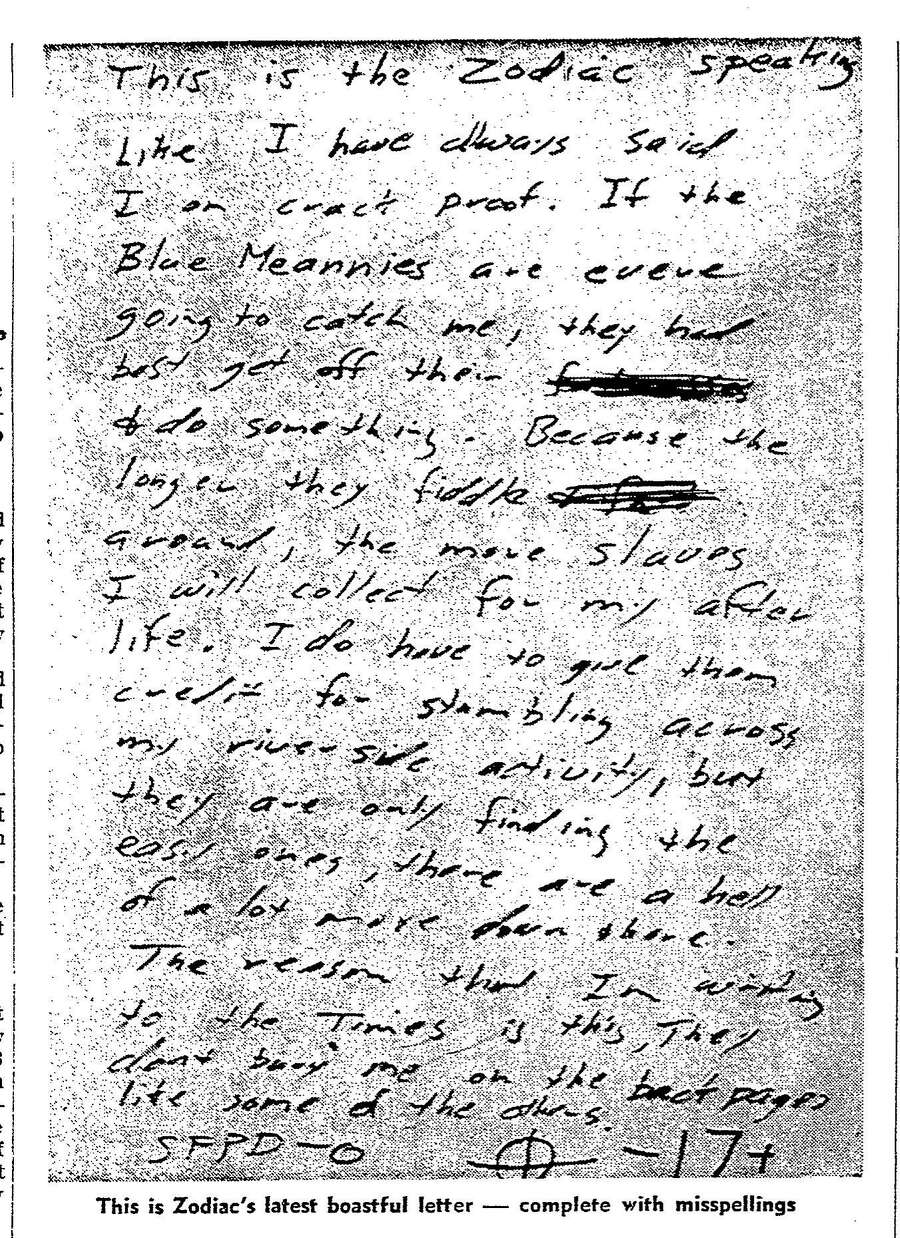 This is the Zodiac speaking
Like I have always said
I am crack proof. If the
Blue Meannies are evere
going to catch me, they had
best get off their
& do something. Because the
longer they fiddle
around, the more slaves
I will collect for my after
life. I do have to give them
credit for stumbling across
my riverside activity, but
they are only finding the
easy ones, there are a hell
of a lot more down there.
The reason that Im writing
to the Times is this, They
dont bury me on the back pages
like some of the others.
SFPD-0 -17+
This is Zodiac's latest boastful letter — complete with misspellings